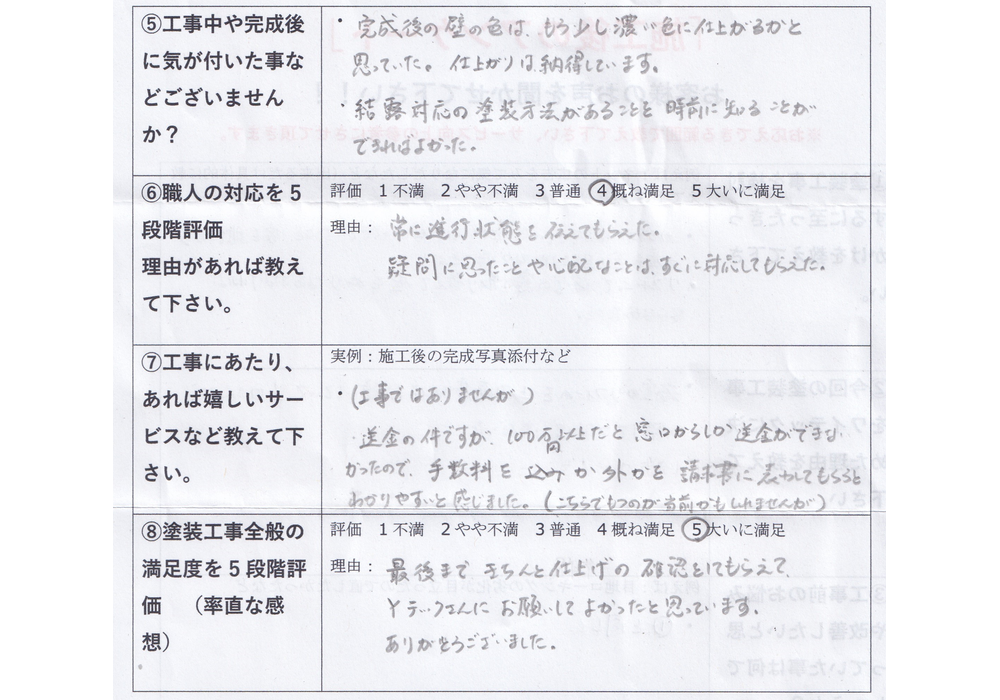 ⑤工事中や完成後
に気が付いた事な
どございません
か？
・完成後の壁の色は、もう少し濃い色に仕上がるかと
思っていた。仕上がりは納得しています。
・結露対応の塗装方法があることを時前に知ることが
できればよかった。
⑥職人の対応を５
段階評価
理由があれば教え
て下さい。
評価　1 不満　2 やや不満　3 普通　4 概ね満足　5 大いに満足
理由：常に進行状態を伝えてもらえた。
疑問に思ったことや心配なことは、すぐに対応してもらえた。
⑦工事にあたり、
あれば嬉しいサー
ビスなど教えて下
さい。
実例：施工後の完成写真添付など
・(工事ではありませんが)
・送金の件ですが、100万円以上だと窓口からしか送金ができな
かったので、手数料を込みか外かを請求書に表わしてもらうと
わかりやすいと感じました。(こちらでもつのが当前かもしれませんが)
⑧塗装工事全般の
満足度を５段階評
価　（率直な感
想）
評価　1 不満　2 やや不満　3 普通　4 概ね満足　5 大いに満足
理由：最後まできちんと仕上げの確認をしてもらえて、
Yテックさんにお願いしてよかったと思っています。
ありがとうございました。